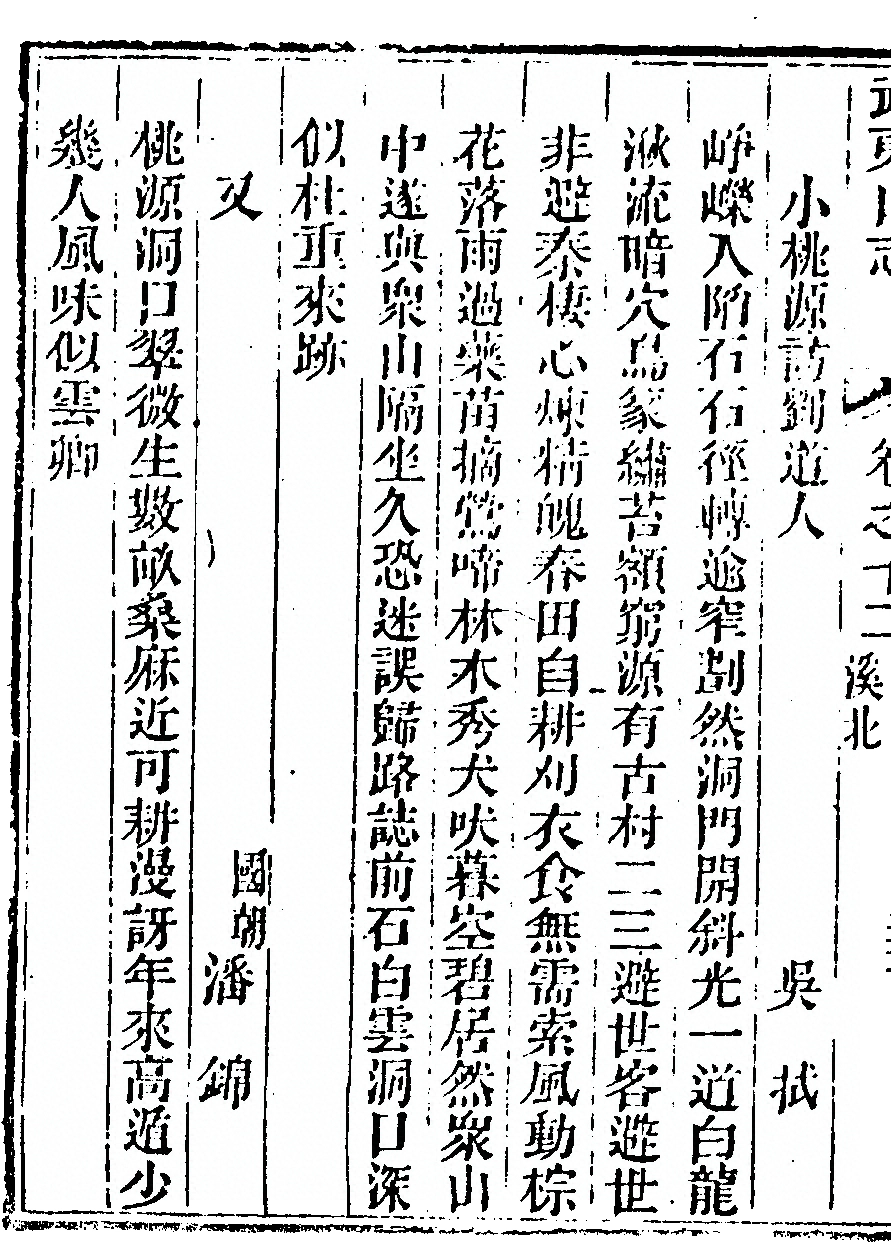 武夷山志 卷之十二 溪北
小桃源訪劉道人 吳拭
崢嶸入陗石石徑轉逾窄劃然洞門開斜光一道白龍
湫流暗穴鳥篆繡苔額窮源有古村二三避世客避世
非避秦棲心煉精魄春田自耕刈衣食無需索風動棕
花落雨過藥苗摘鶯啼林木秀犬吠暮空碧居然衆山
中遂與衆山隔坐久恐迷誤歸路誌前石白雲洞口深
似杜重來跡
又 國朝潘錦
桃源洞口翠微生數畝桑麻近可耕漫訝年來高遁少
幾人風味似雲卿